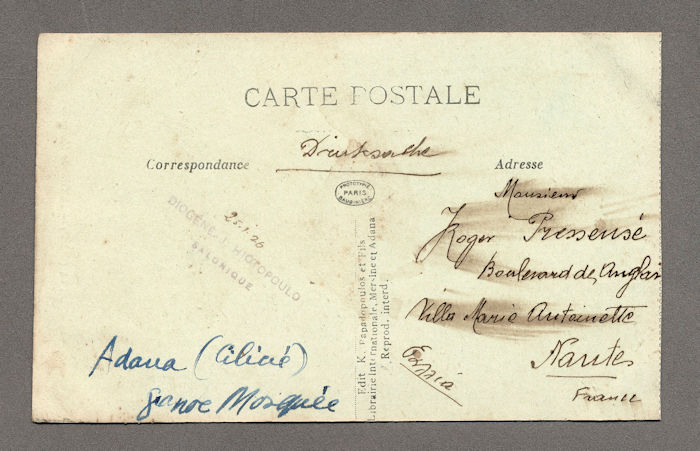 CARTE POSTALE
Drucksache
Correspondance
Adresse
PHOTOTYPIE
PARIS
BAUDINIÈRE
25-1-26
DIOGÈNE J. HIOTOPOULO
SALONIQUE
Monsieur
Roger Pressensé
Boulevard des Anglais
Villa Marie Antoinette
Nantes
France
Edit K. Papadopoulos et Fils
Librairie Internationale, Mersine et Adana
Reprod. interd.
Adana (Cilicie)
Mosquée